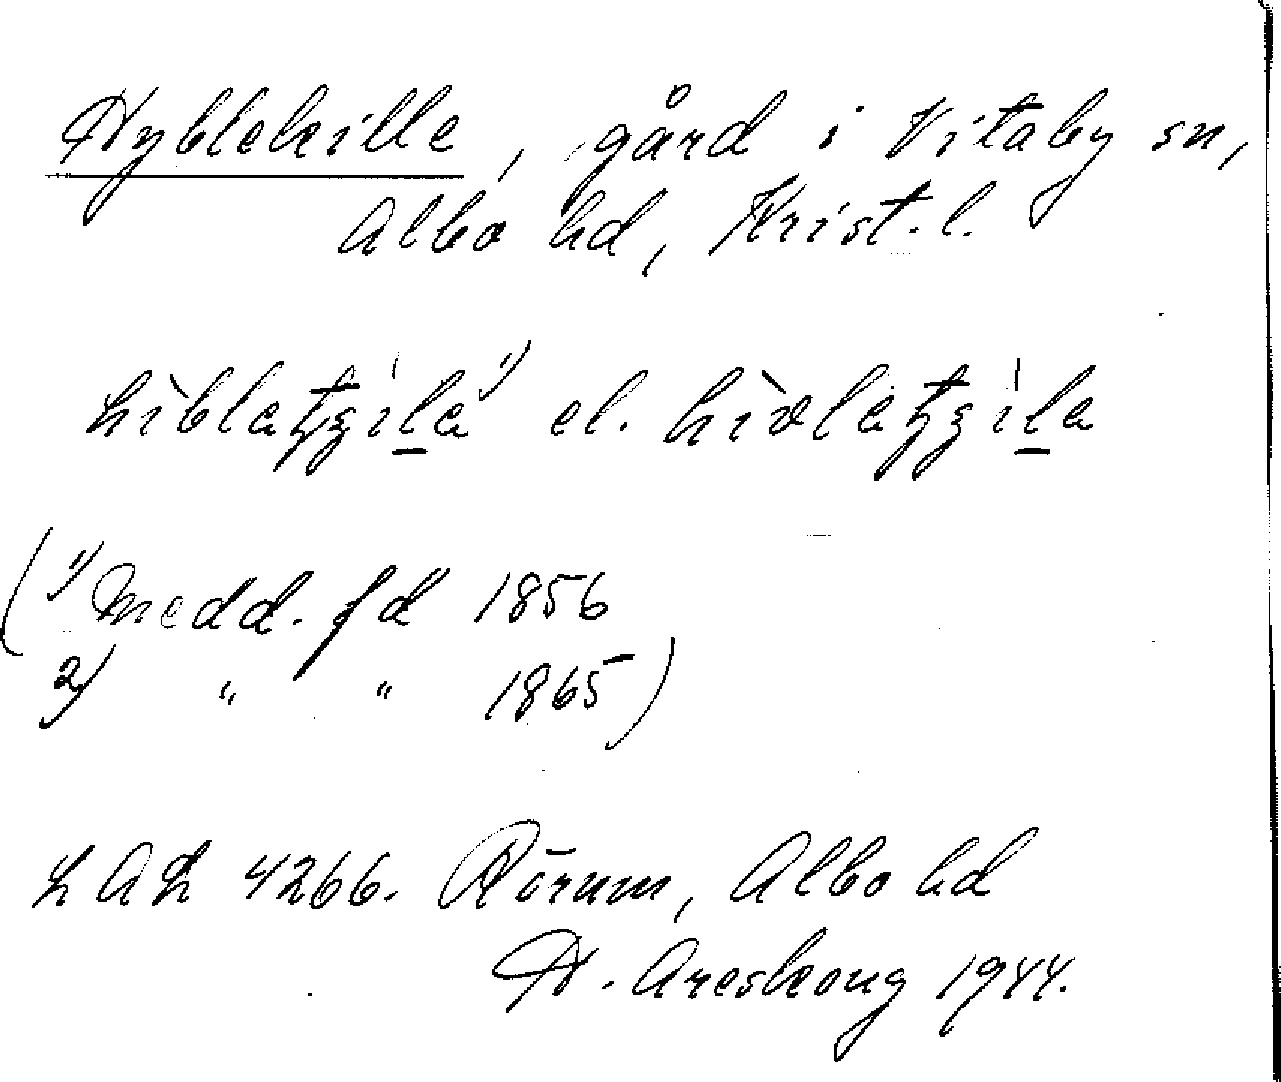 Hyblekille, gård i Vitaby sn,
Albo hd, Krist. l.
el.
(1) Medd. fd 1856
2) " " 1865)
LAL 4266. Rörum, Albo hd
H. Areskoug 1944.